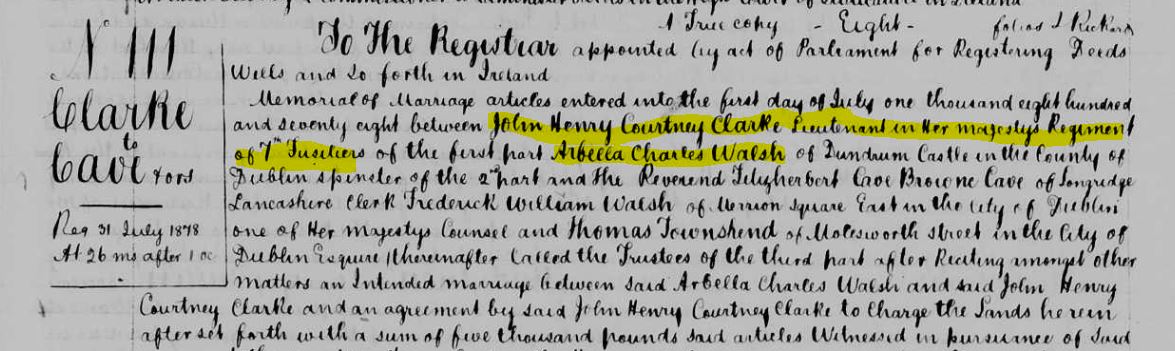 A True copy - Eight - folios J Rickard
N 111
To The Registrar appointed by act of Parliament for Registering Deeds
Wills and so forth in Ireland
Clarke
to
Cave & ors
Reg 31 July 1878
At 26 ms after 1 oc
Memorial of Marriage articles entered into the first day of July one thousand eight hundred
and seventy eight between John Henry Courtney Clarke Lieutenant in Her majestys Regiment
of 7th Fusiliers of the first part Arbella Charles Walsh of Dundrum Castle in the County of
Dublin spinster of the 2nd part and the Reverend Fitzherbert Cave Browne Cave of Longridge
Lancashire Clerk Frederick William Walsh of Merrion Square East in the City of Dublin
one of Her majestys Counsel and Thomas Townshend of Molesworth street in the City of
Dublin Esquire thereinafter Called the Trustees of the third part after Reciting amongst other
matters an Intended marriage between said Arbella Charles Walsh and said John Henry
Courtney Clarke and an agreement by said John Henry Courtney Clarke to Charge the Lands herein
after set forth with a sum of five thousand pounds said articles Witnessed in pursuance of said